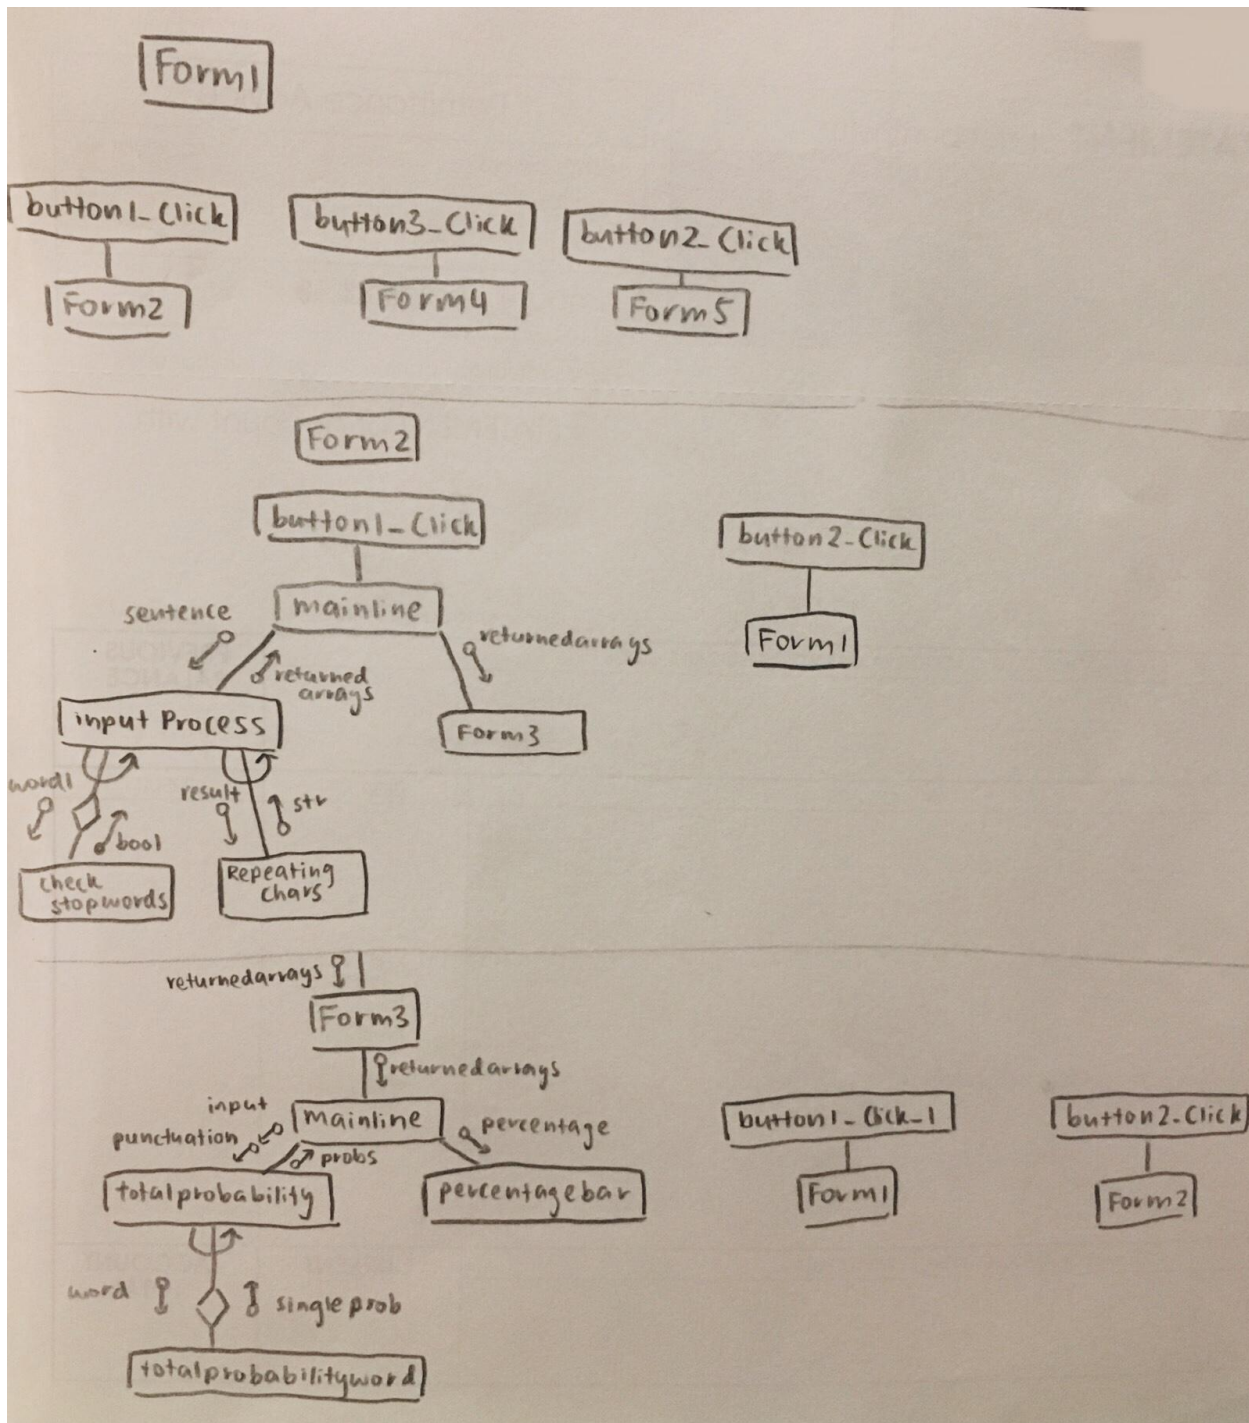 Form1
button1_Click
button3_Click
button2_Click
Form2
Form4
Form5
Form2
button1_Click
button2_Click
mainline
sentence
returnedarrays
Form1
returned
arrays
input Process
Form3
word1
result
str
bool
Check
stopwords
Repeating
Chars
returnedarrays
Form3
returnedarrays
input
mainline
percentage
button1_Click_1
button2_Click
punctuation
probs
totalprobability
percentagebar
Form1
Form2
word
single prob
totalprobabilityword